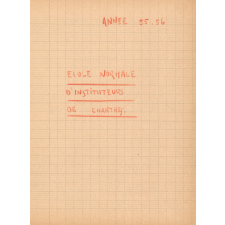 ANNÉE 25.26
ECOLE NORMALE
D'INSTITUTEURS
DE CHARTRES